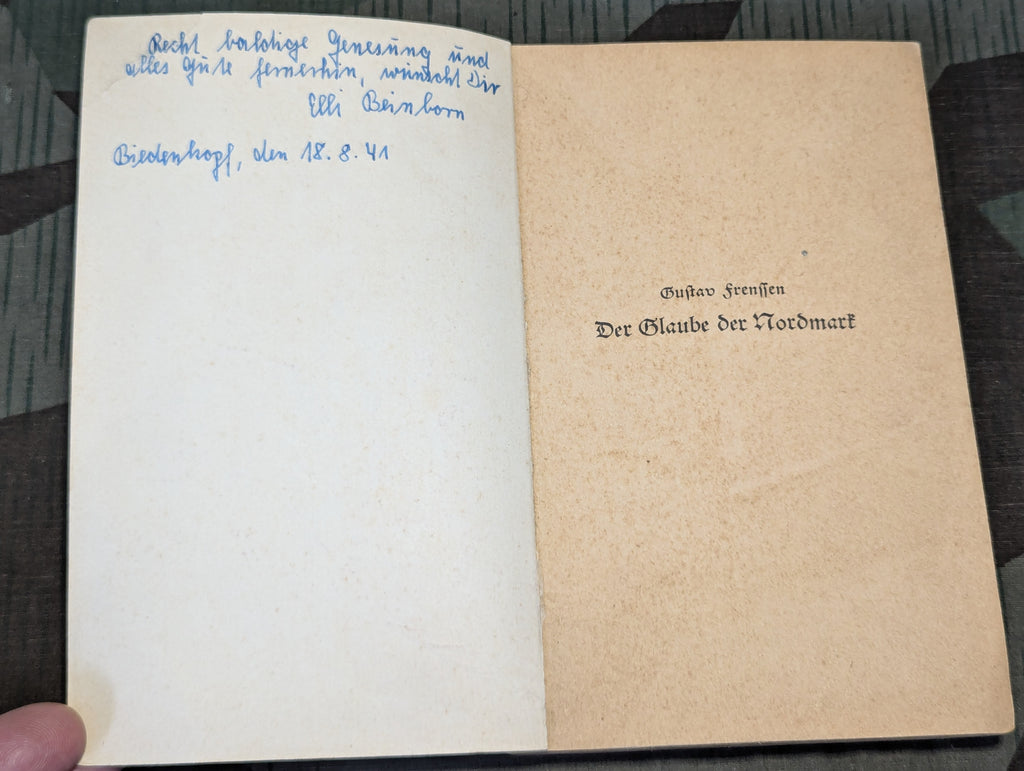 Recht baldige Genesung und
alles Gute fernerhin, wünscht Dir
Elli Beinborn
Biedenkopf, den 18. 8. 41
Gustav Frenssen
Der Glaube der Nordmark